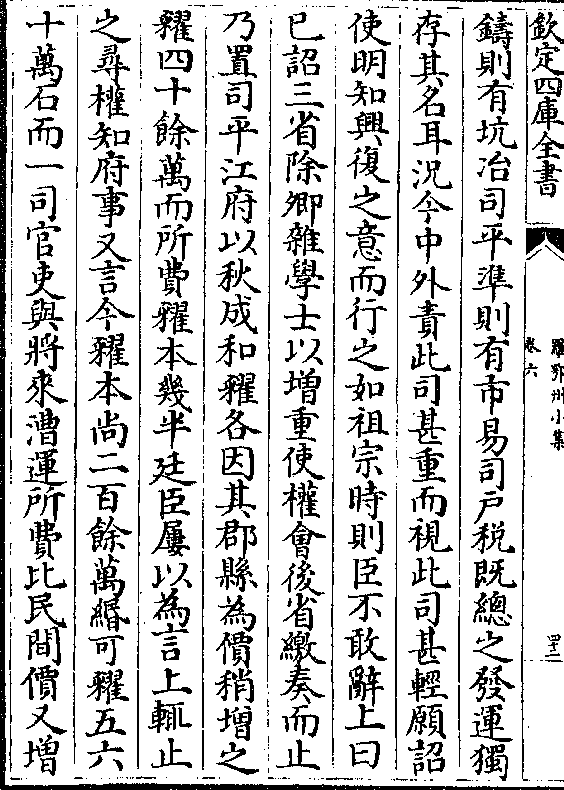 欽定四庫全書
羅鄂州小集
卷六
四十二
鑄則有坑冶司平準則有市易司戸税既總之發運獨
存其名耳況今中外責此司甚重而視此司甚輕願詔
使明知興復之意而行之如祖宗時則臣不敢辭上曰
已詔三省除卿雜學士以増重使權會後省繳奏而止
乃置司平江府以秋成和糴各因其郡縣為價稍增之
糴四十餘萬而所費糴本幾半廷臣屢以為言上輒止
之尋權知府事又言今糴本尚二百餘萬緡可糴五六
十萬石而一司官吏與將來漕運所費比民間價又增